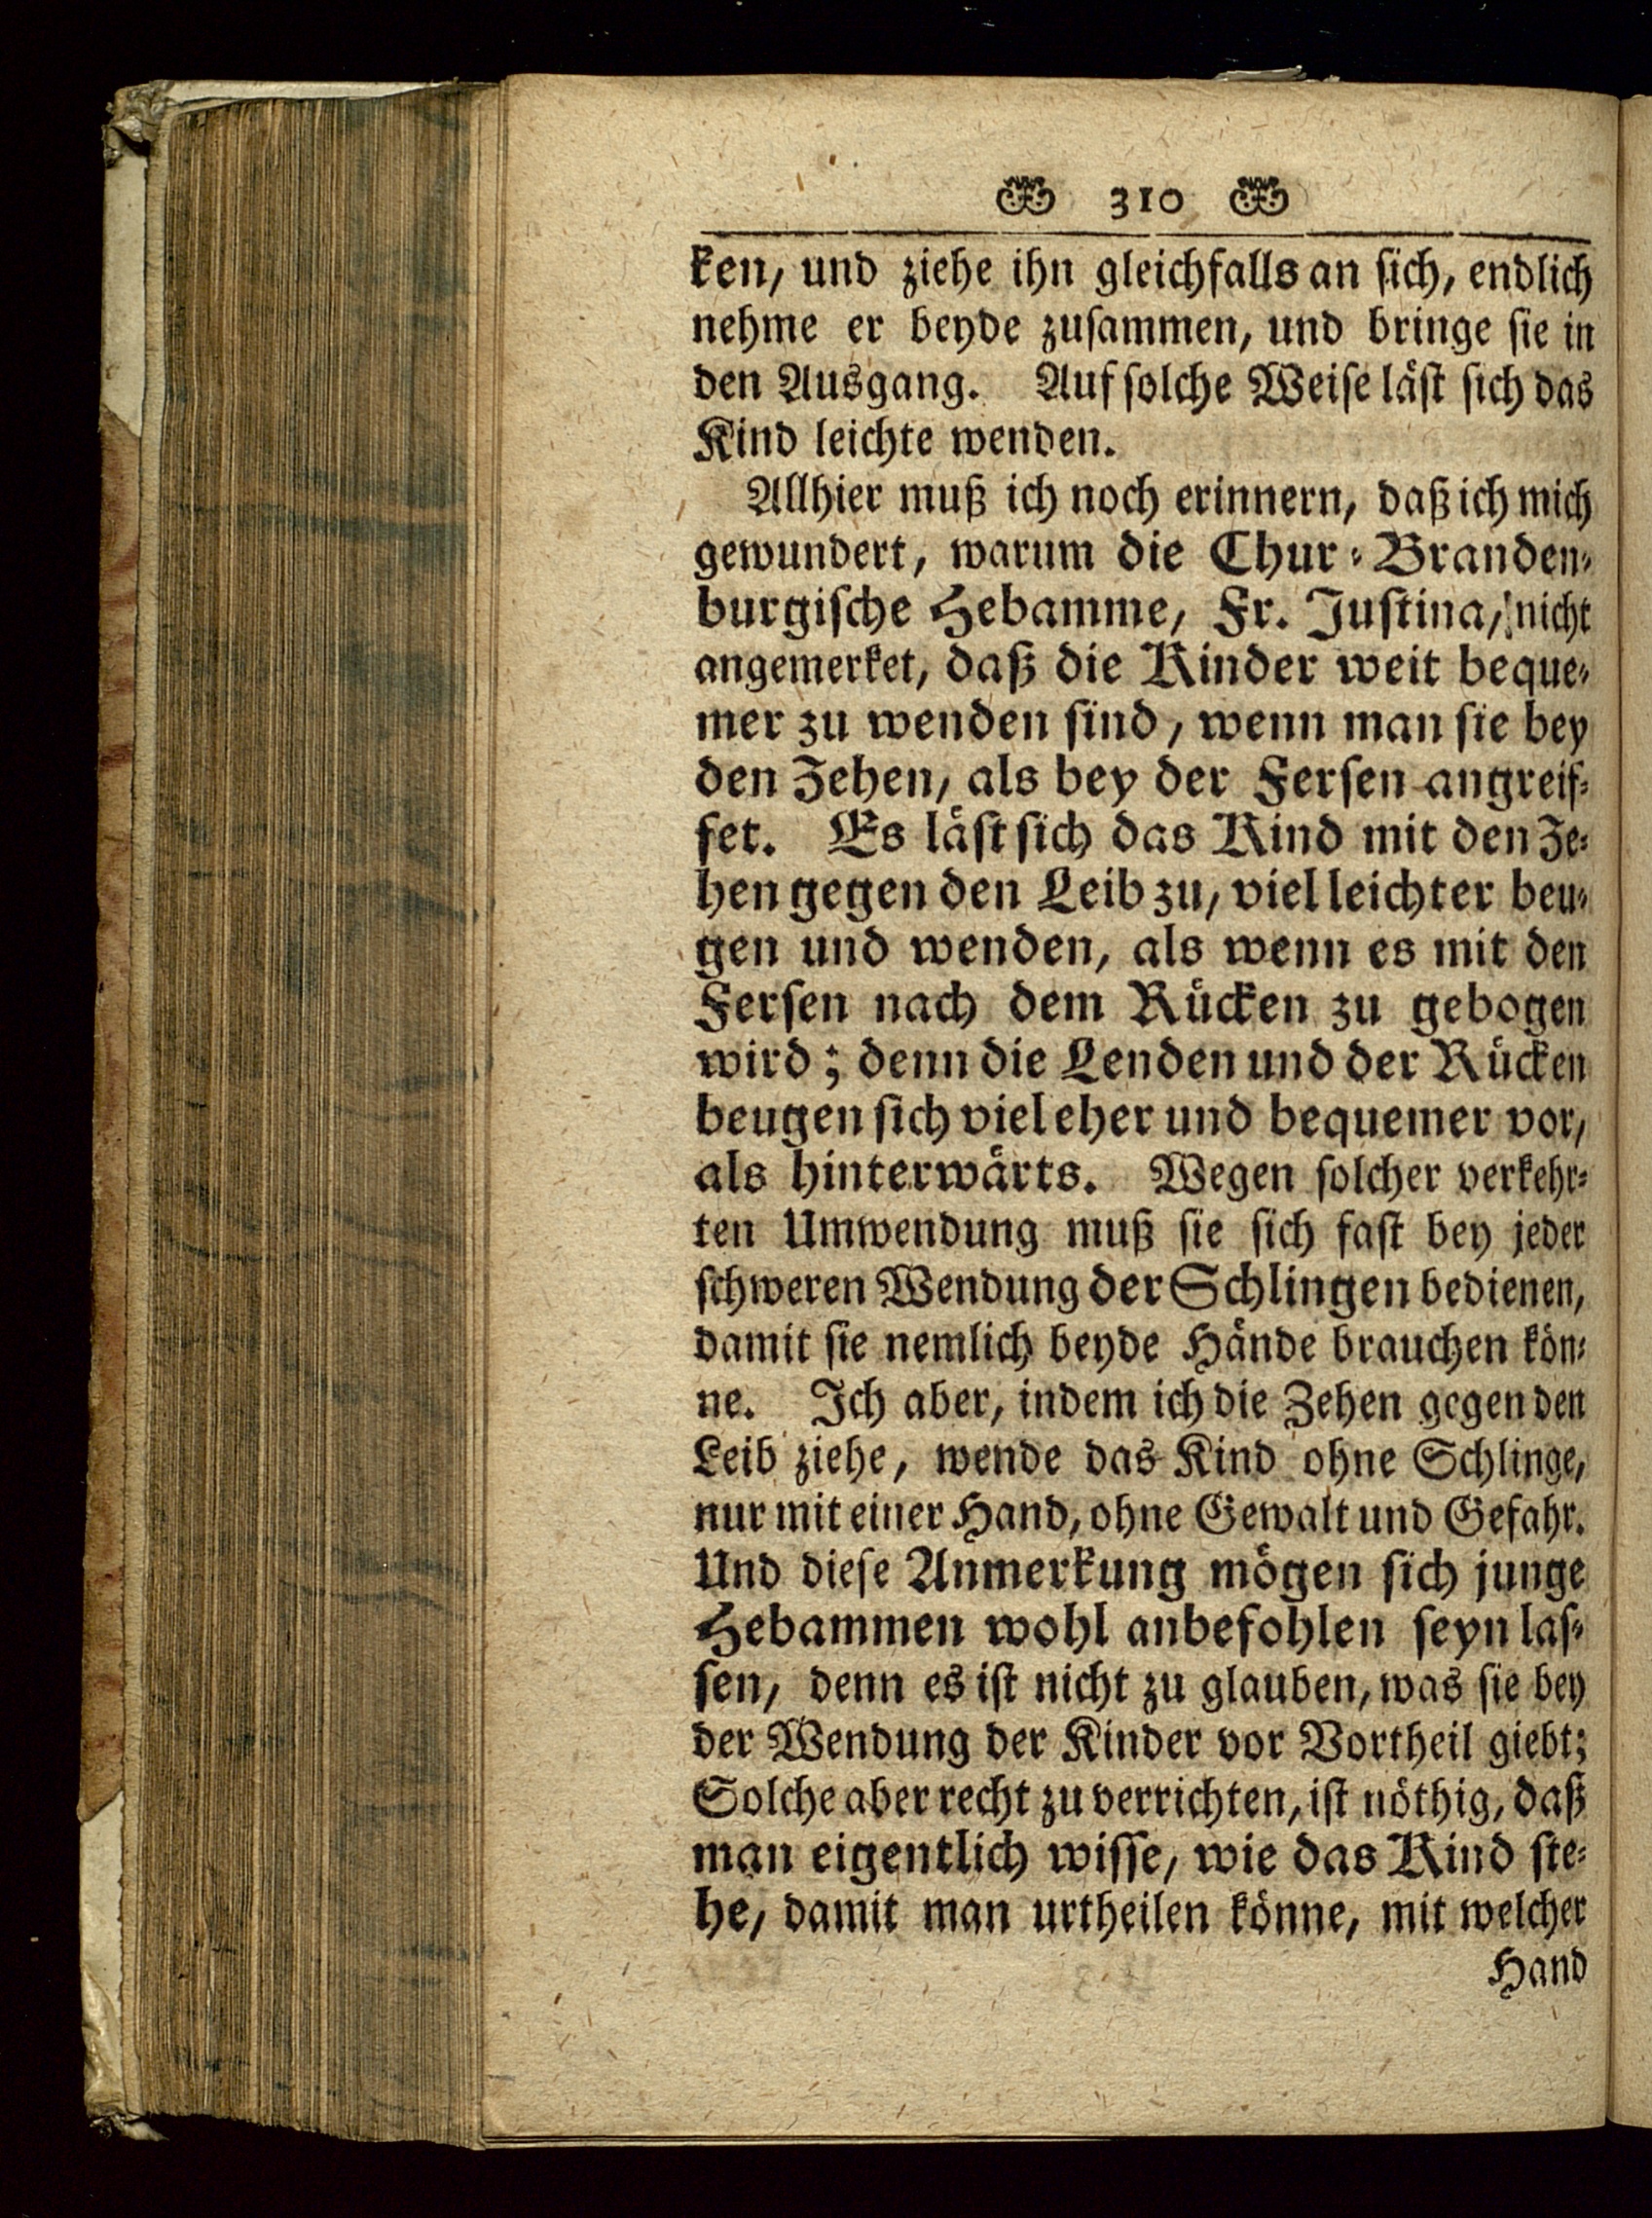 310
ken, und ziehe ihn gleichfalls an sich, endlich
nehme er beyde zusammen, und bringe sie in
den Ausgang. Auf solche Weise läst sich das
Kind leichte wenden.
Allhier muß ich noch erinnern, daß ich mich
gewundert, warum die Chur-Branden-
burgische Hebamme, Fr. Justina, nicht
angemerket, daß die Kinder weit beque-
mer zu wenden sind, wenn man sie bey
den Zehen, als bey der Fersen angreif-
fet. Es läst sich das Kind mit den Ze-
hen gegen den Leib zu, viel leichter beu-
gen und wenden, als wenn es mit den
Fersen nach dem Rücken zu gebogen
wird; denn die Lenden und der Rücken
beugen sich viel eher und bequemer vor,
als hinterwärts. Wegen solcher verkehr-
ten Umwendung muß sie sich fast bey jeder
schweren Wendung der Schlingen bedienen,
damit sie nemlich beyde Hände brauchen kön-
ne. Ich aber, indem ich die Zehen gegen den
Leib ziehe, wende das Kind ohne Schlinge,
nur mit einer Hand, ohne Gewalt und Gefahr.
Und diese Anmerkung mögen sich junge
Hebammen wohl anbefohlen seyn las-
sen, denn es ist nicht zu glauben, was sie bey
der Wendung der Kinder vor Vortheil giebt;
Solche aber recht zu verrichten, ist nöthig, daß
man eigentlich wisse, wie das Kind ste-
he, damit man urtheilen könne, mit welcher
Hand